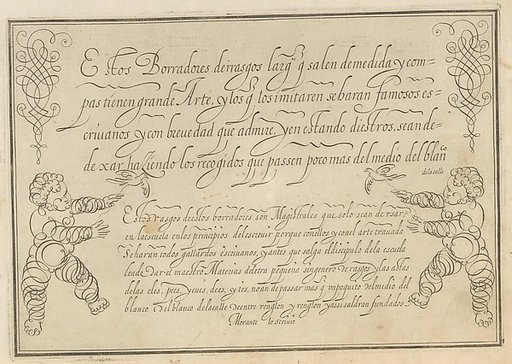 Estos Borradores de rrasgos largos q̃ salen de medida y com-
pas tienen grande Arte, y los q̃ los imitaren se haran famosos es-
criuanos y con breuedad que admire. Y en estando diestros, sean de-
de xar haziendo los recogidos que passen poco mas del medio del blanco
de la calle
Estos rasgos destos borradores son Magistrales que solo sean de vsar
en la escuela en los principios del escreuir porque con ellos y con el arte
se haran todos gallardos escriuanos, y antes que salga el discipulo de la escuela
le ad. Dar el maestro Materias de letra pequeña sin genero de rasgos y las astas
de las eles, pees, y cues, dees, y ies, no an de passar mas q̃ vn poquito del medio del
blanco o el blanco de la calle entre renglon y renglon y assi saldran fundados.
Morante lo scriuio